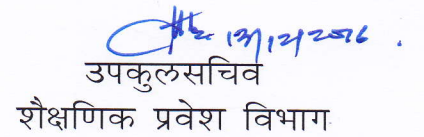 13/12/2016.
उपकुलसचिव
शैक्षणिक प्रवेश विभाग